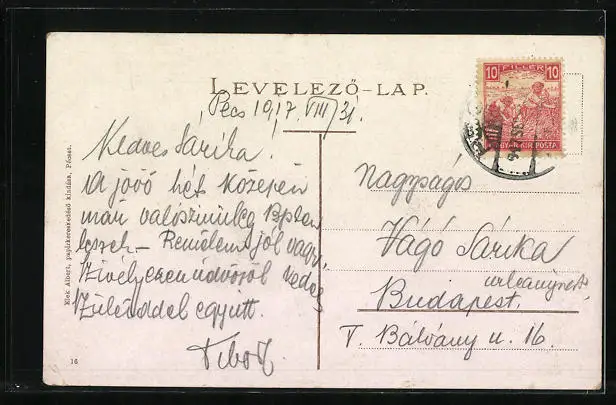 LEVELEZŐ-LAP.
Pécs 1917 VIII/31.
Kedves Sárika!
A jövő hét közepén
már valószinüleg Bpten
leszek – Remélem jól vagy,
Szivélyesen üdvözöl kedves
Szüleiddel együtt.
Tibor
10 FILLÉR 10
MAGYAR KIR. POSTA
Nagyságos
Vágó Sárika
urleánynak
Budapest.
V. Bálvány u. 16.
Elek Albert, papírkereskedésé kiadása, Pécsett.
16